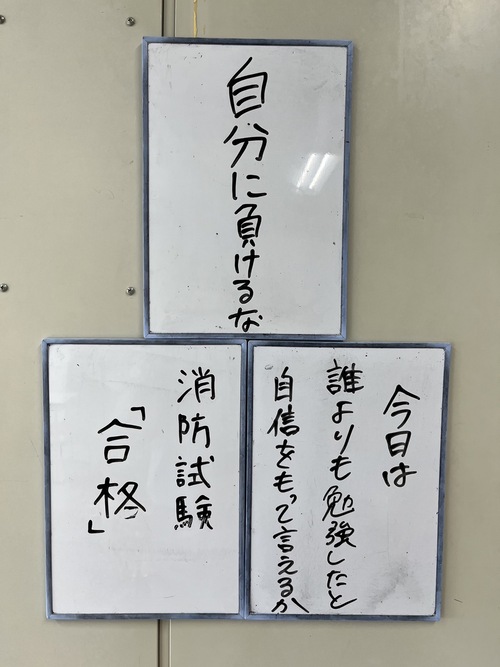 自分に負けるな
今日は
誰よりも勉強したと
自信をもって言えるか
消防試験
「合格」